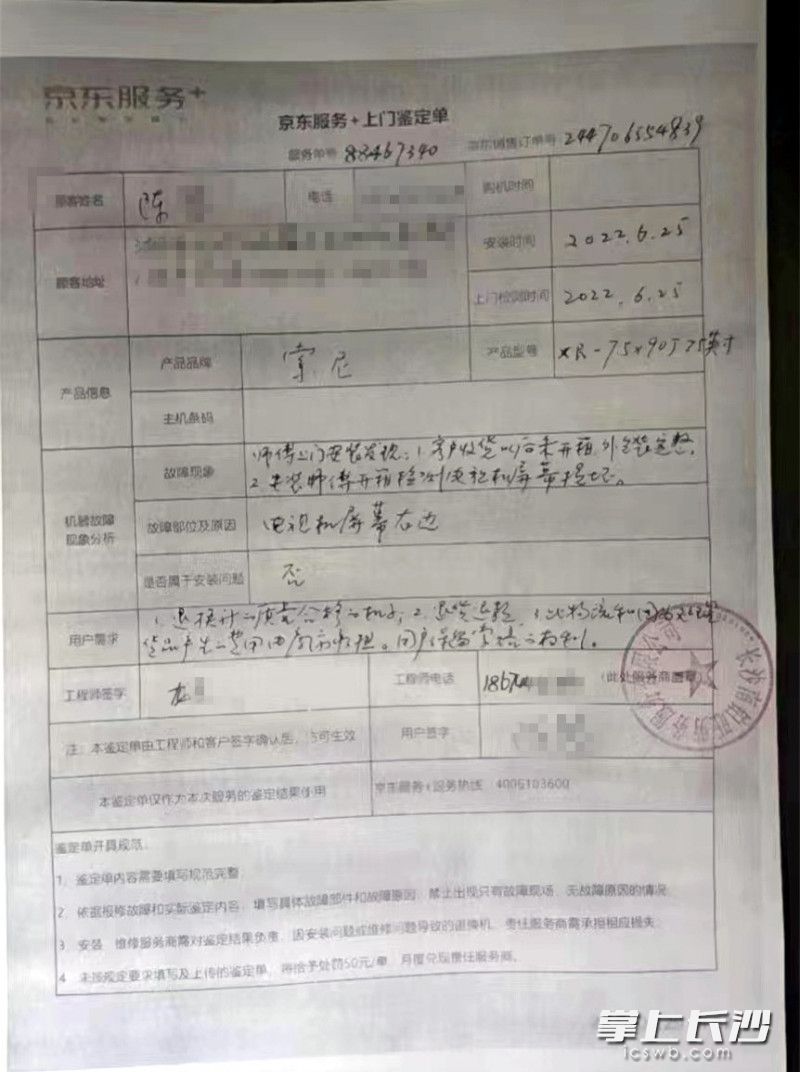 京东服务+
京东服务+上门鉴定单
服务单号 88467340 京东销售订单号 244706554839
顾客姓名 陈 电话 购机时间
顾客地址 安装时间 2022.6.25
上门检测时间 2022.6.25
产品信息 产品品牌 索尼 产品型号 XR-75X90J 75英寸
主机条码
机器故障现象分析
故障现象 师傅上门安装发现:1客户收货以后未开箱,外包装完整,
2安装师傅开箱检测电视机屏幕损坏。
故障部位及原因 电视机屏幕右边
是否属于安装问题 否
用户需求 1.退换 合格 机子;2.退货退款,3.比物流和
货品产生 费用由 承担。用户保留
工程师签字 工程师电话 186 (此处服务商盖章)
注:本鉴定单由工程师和客户签字确认后,方可生效 用户签字
本鉴定单仅作为本次服务的鉴定结果使用 京东服务+服务热线:4006103600
鉴定单开具规范:
1、鉴定单内容需要填写规范完整
2、依据报修故障和实际鉴定内容,填写具体故障部件和故障原因,禁止出现只有故障现场,无故障原因的情况
3、安装、维修服务商需对鉴定结果负责,因安装问题或维修问题导致的退换机,责任服务商需承担相应损失
4、未按规定要求填写及上传的鉴定单,将给予处罚50元/单,月度兑现责任服务商。
掌上长沙
icswb.com